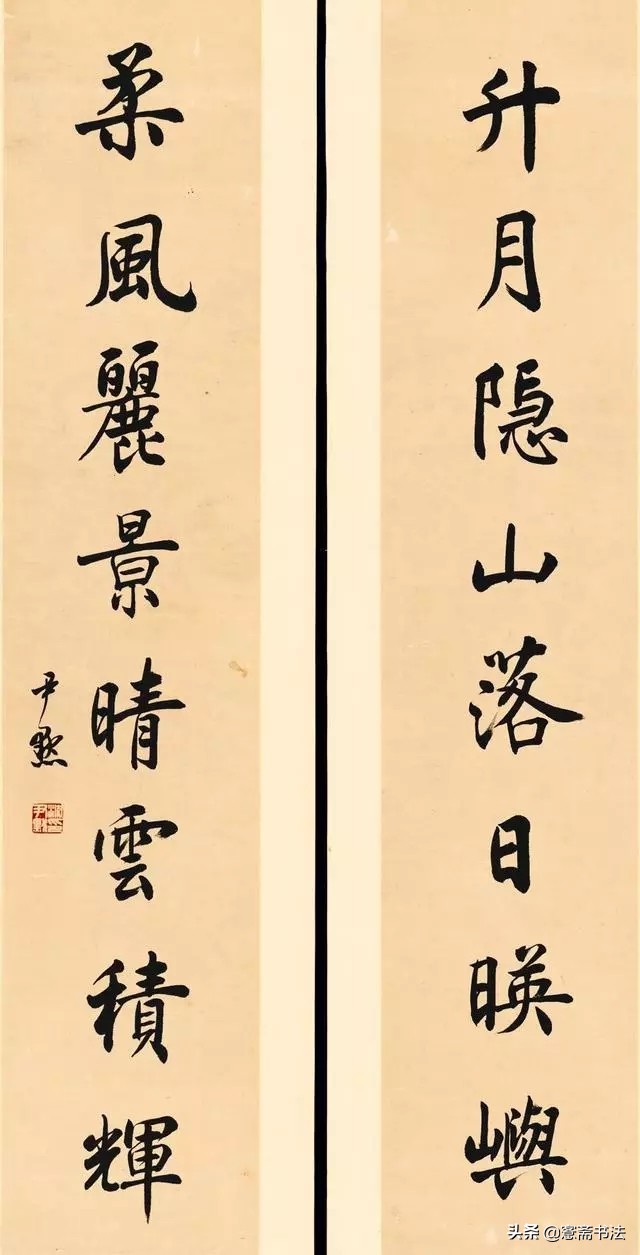 升月隐山落日暎嶼
柔風麗景晴雲積輝
尹默
头条 @愙斋书法